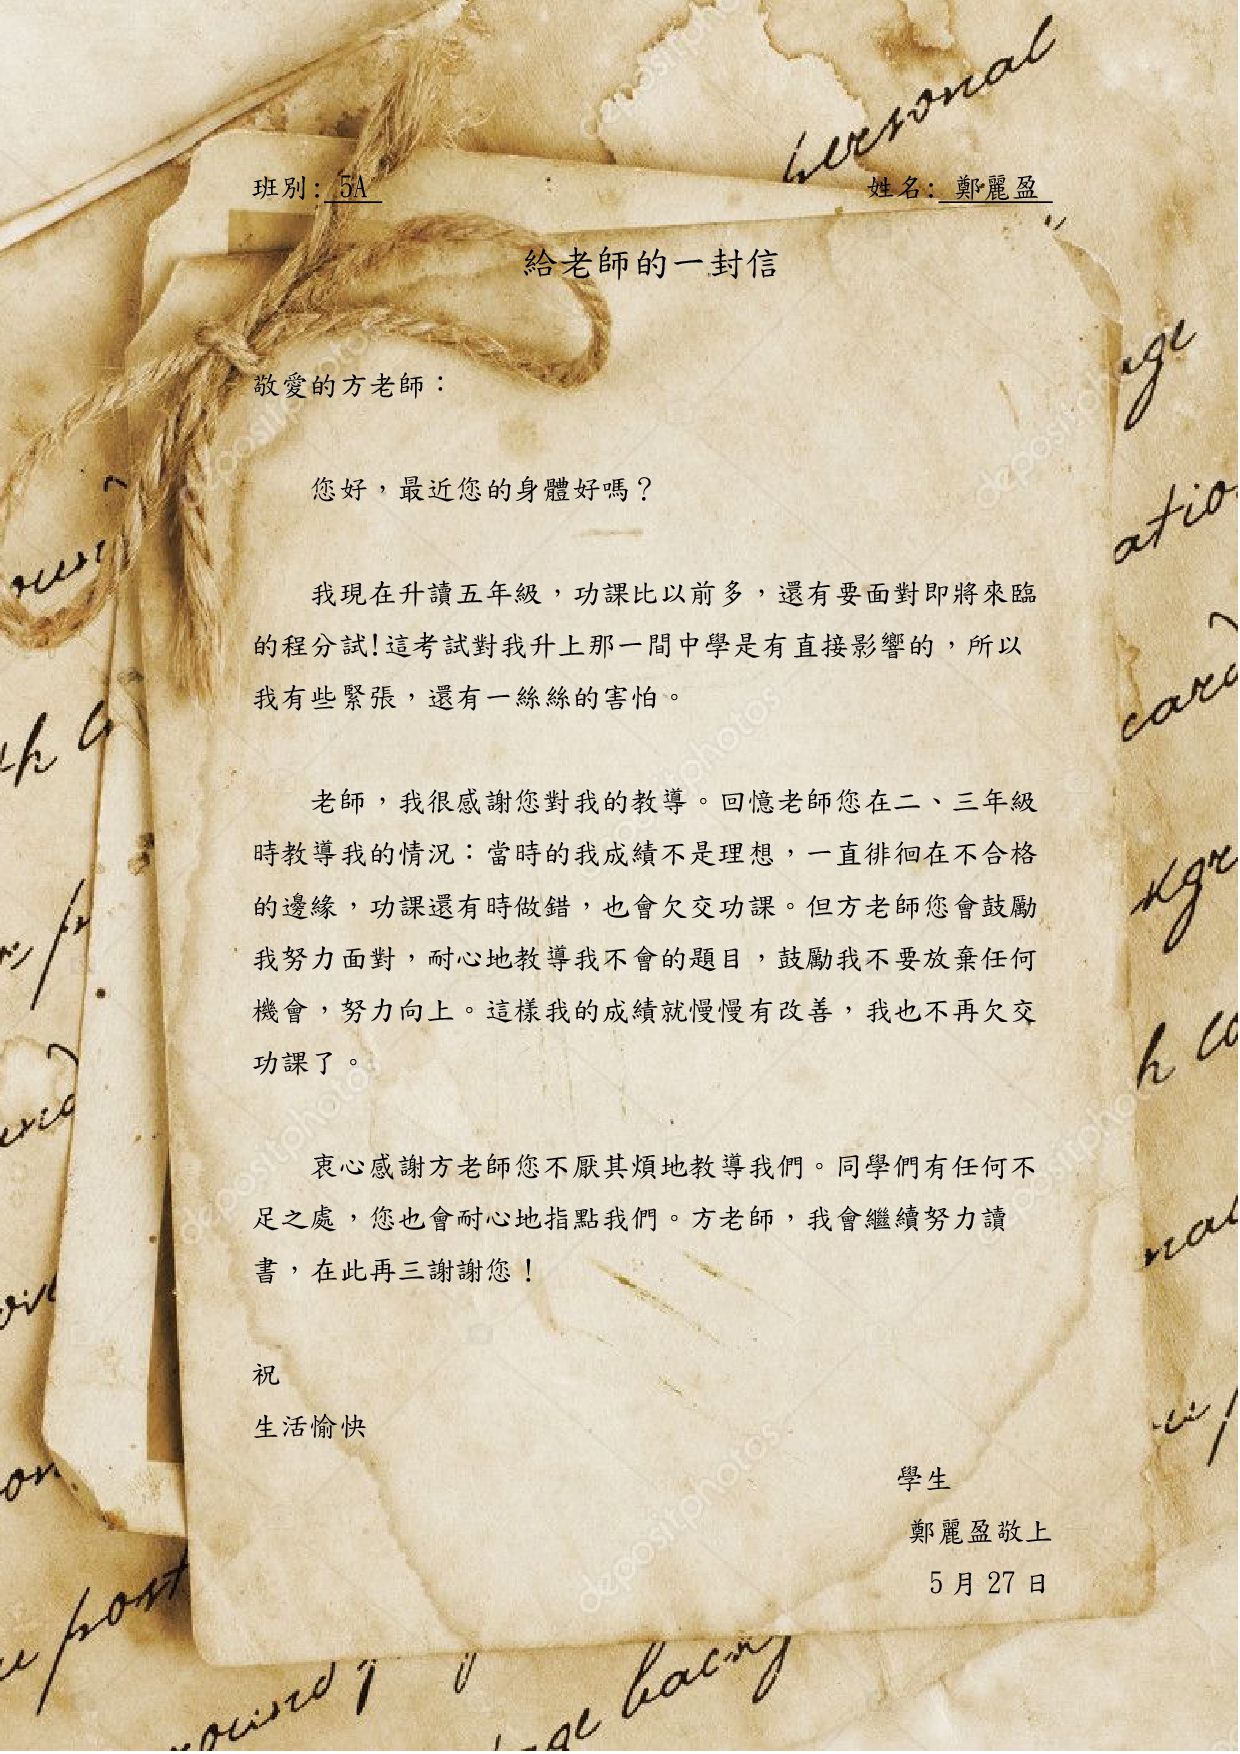 班別: 5A 姓名: 鄭麗盈
給老師的一封信
敬愛的方老師：
您好，最近您的身體好嗎？
我現在升讀五年級，功課比以前多，還有要面對即將來臨
的程分試!這考試對我升上那一間中學是有直接影響的，所以
我有些緊張，還有一絲絲的害怕。
老師，我很感謝您對我的教導。回憶老師您在二、三年級
時教導我的情況：當時的我成績不是理想，一直徘徊在不合格
的邊緣，功課還有時做錯，也會欠交功課。但方老師您會鼓勵
我努力面對，耐心地教導我不會的題目，鼓勵我不要放棄任何
機會，努力向上。這樣我的成績就慢慢有改善，我也不再欠交
功課了。
衷心感謝方老師您不厭其煩地教導我們。同學們有任何不
足之處，您也會耐心地指點我們。方老師，我會繼續努力讀
書，在此再三謝謝您！
祝
生活愉快
學生
鄭麗盈敬上
5 月 27 日
personal
depositphotos